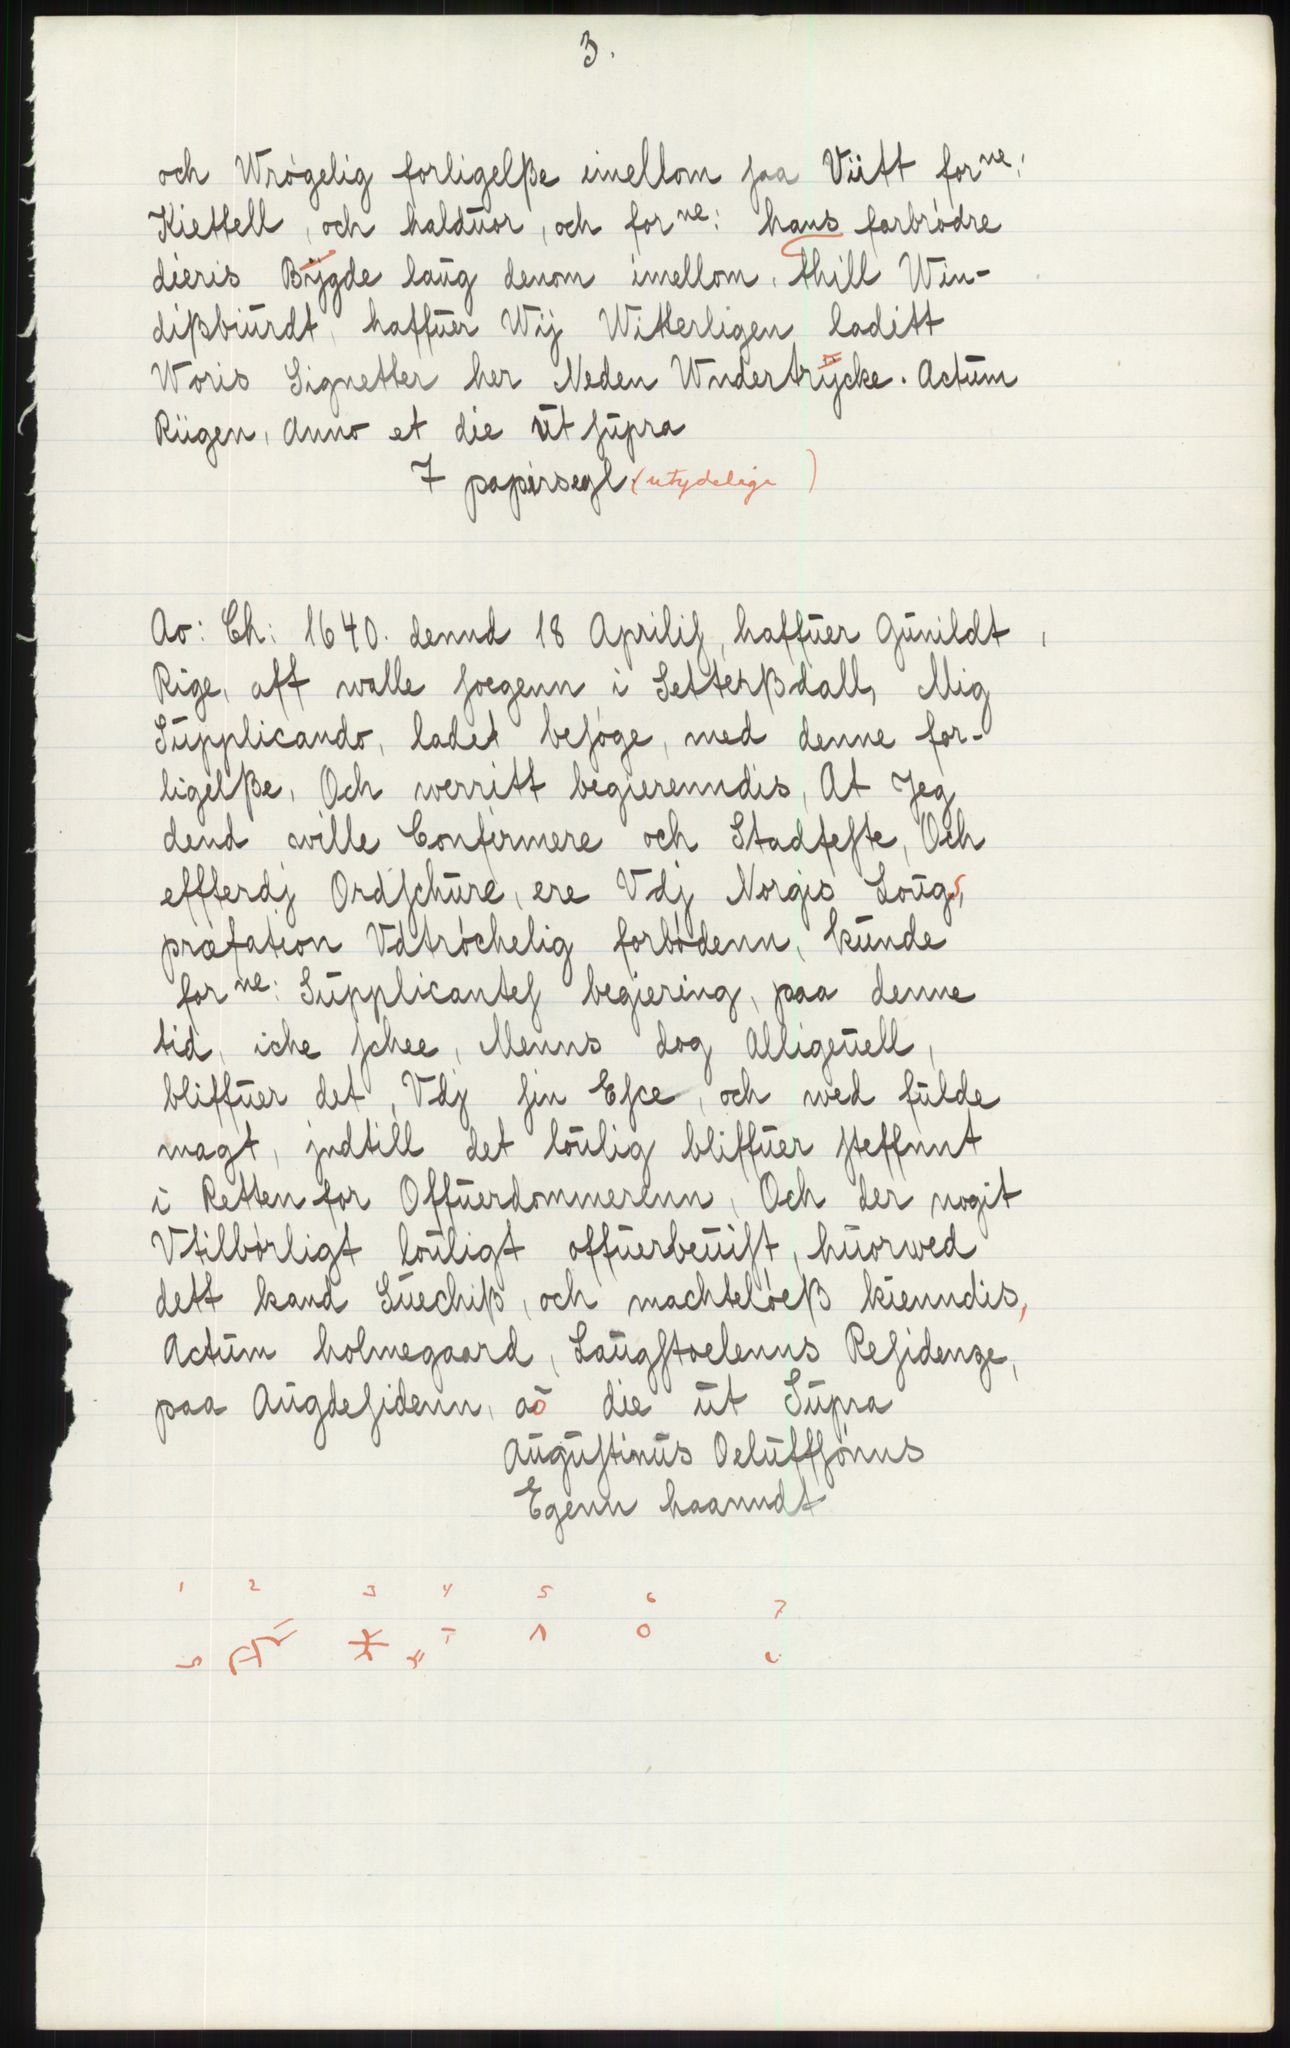 3.
och Wrøgelig forligelße imellom saa Viitt forne:
Kiettell, och halduor, och forne: hans farbrødre
dieris Bÿgde laug denom imellom, thill Win-
dißbiurdt, haffuer Wij Witterligen laditt
Woris Signetter her Neden Wndertrÿcke. Actum
Riigen, Anno et die ut supra
7 papirsegl (utydelige)
Ao: Ch: 1640. dennd 18 Aprilis, haffuer Gunildt,
Rige, aff walle soegenn i Setterßdall, Mig
Supplicando, ladet besøge, med denne for-
ligelße, Och werritt begierenndis, At Jeg
dend wille Confirmere och Stadfeste, Och
effterdj Ordschure, ere Vdj Norgis Lougs,
præfation Vdtrøchelig forbødenn, kunde
forne: Supplicantes begiering, paa denne
tid, iche schee, Menns dog Alligeuell,
bliffuer det, Vdj sin Esce, och wed fulde
magt, jndtill det loulig bliffuer steffnnt
i Retten for Offuerdommerenn, Och der nogit
Vtilbørligt louligt offuerbeuist, huorwed
dett kand Suechiß, och machteløeß kienndis,
Actum holmegaard, Laugstoelenns Residenze,
paa Augdesidenn, ao die ut Supra
Augustinus Oeluffsønns
Egenn haanndt
1 2 3 4 5 6 7